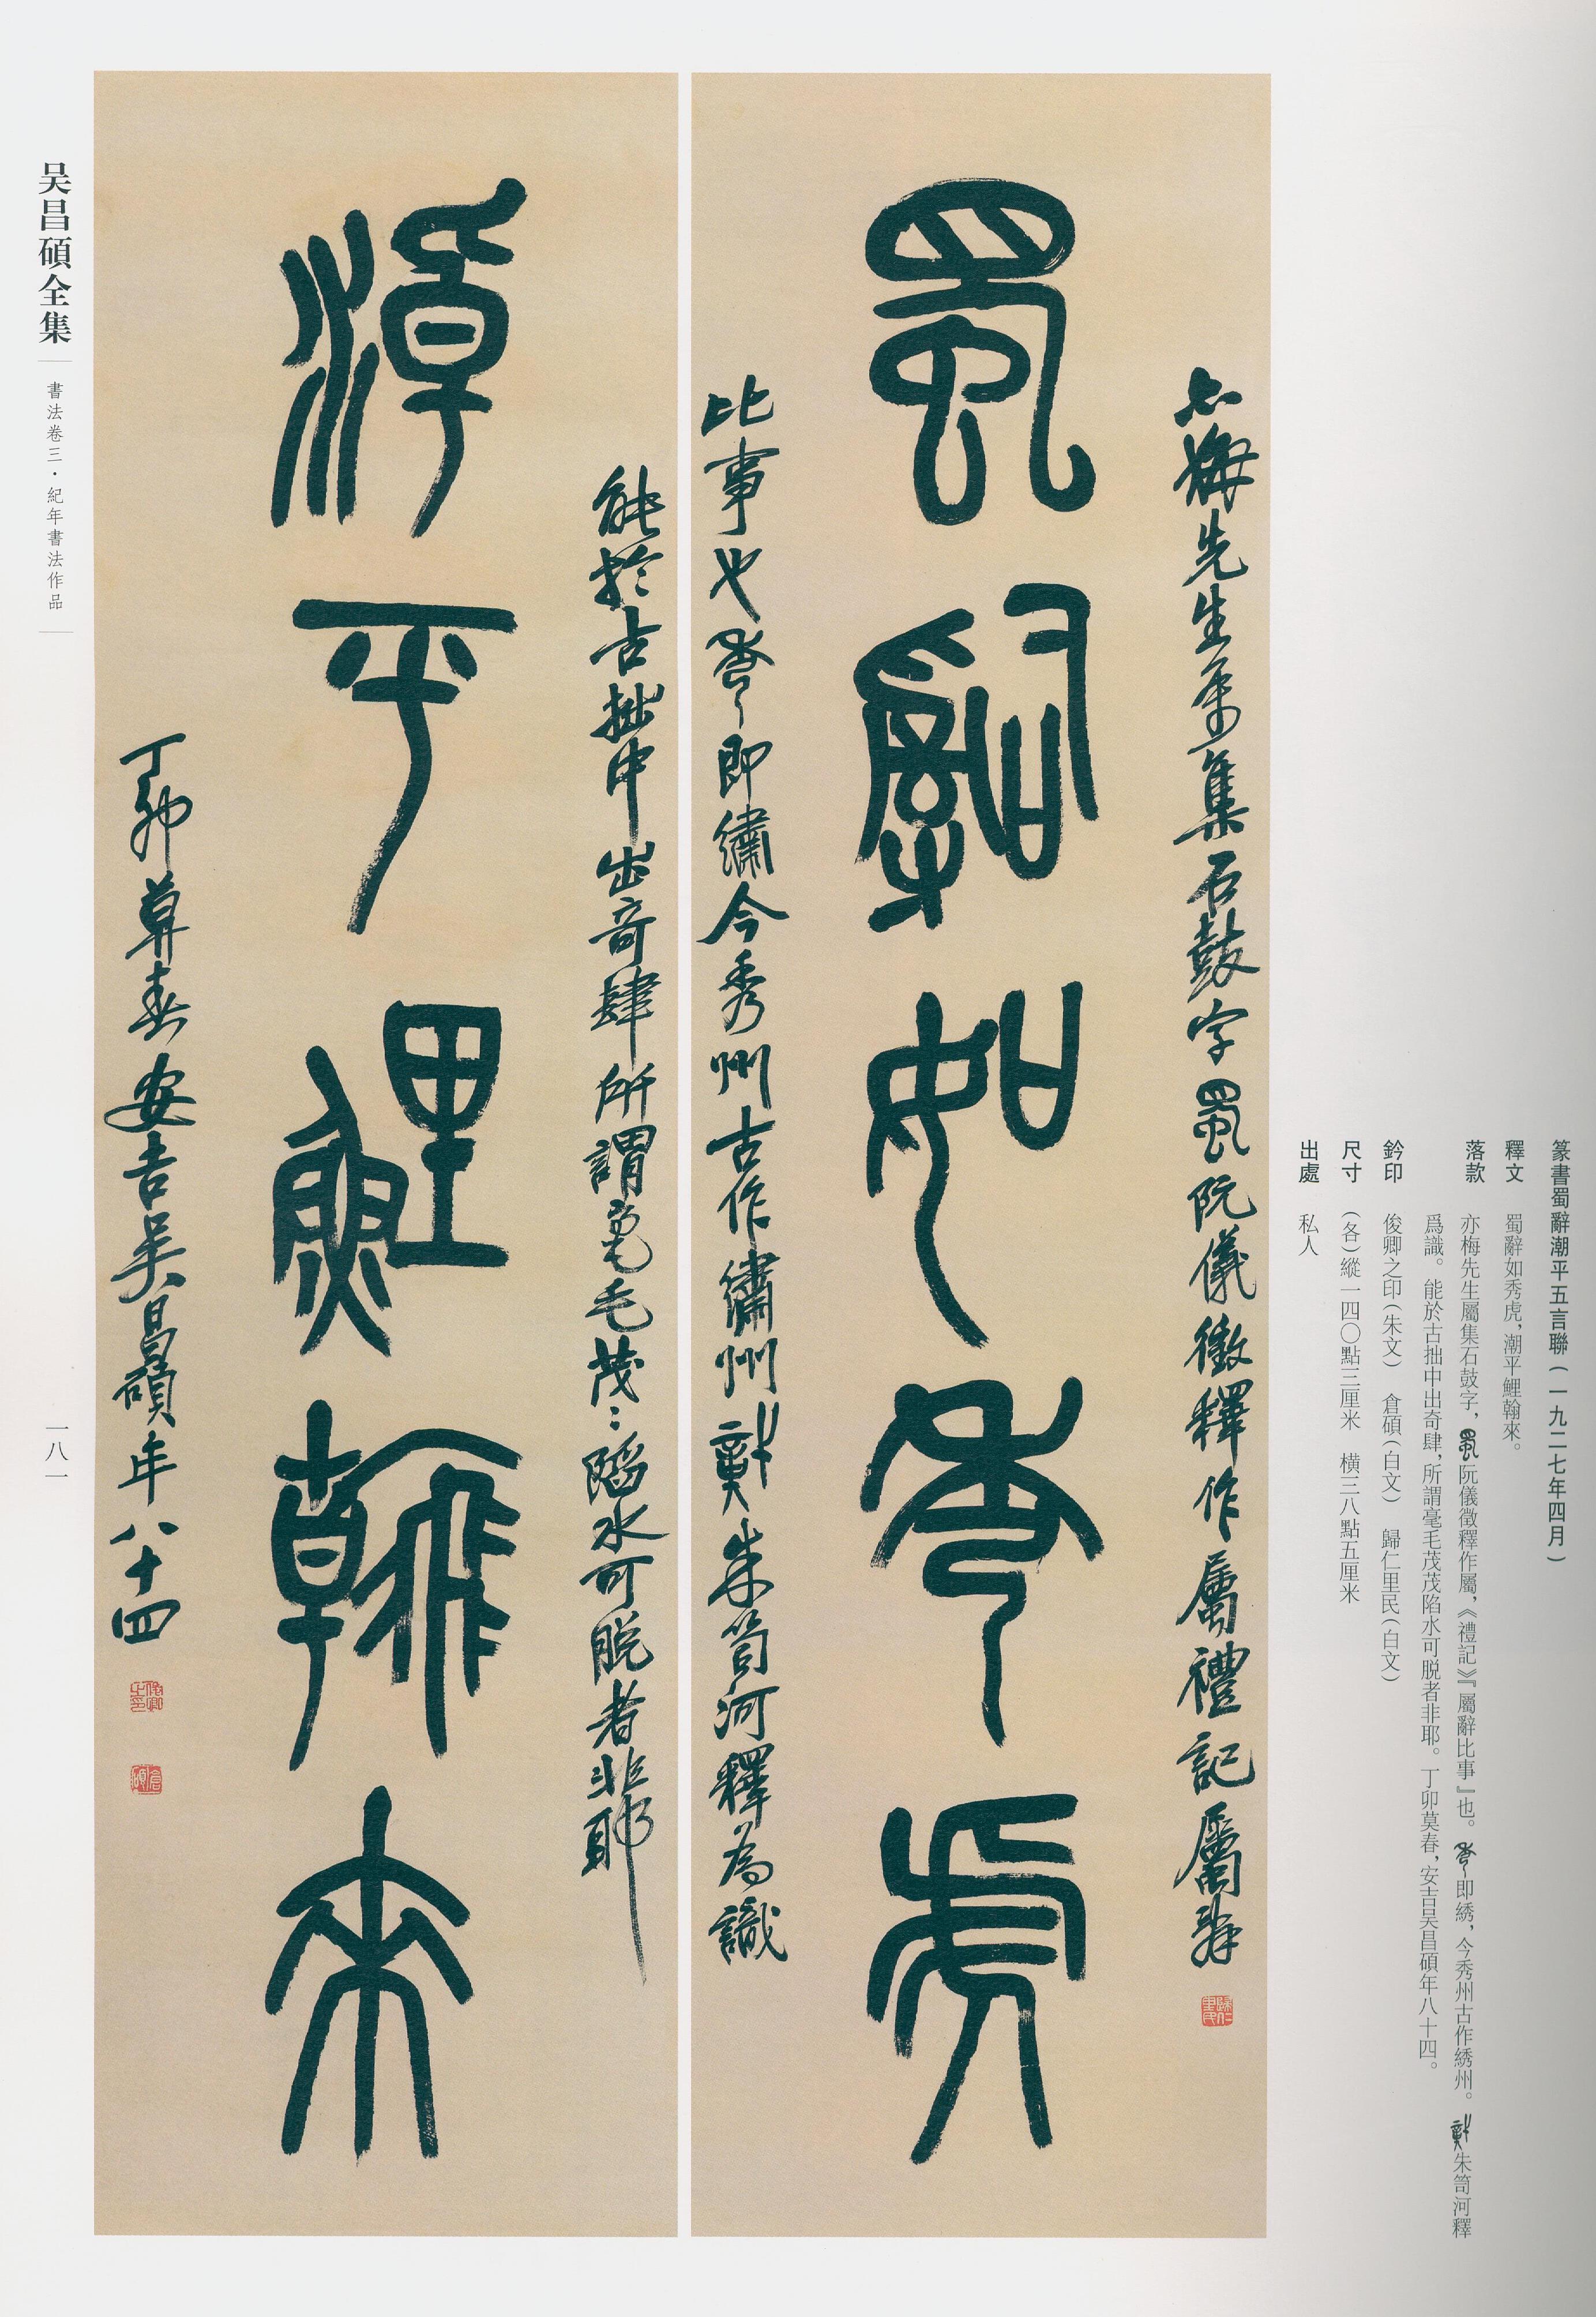 篆書蜀辭潮平五言聯（一九二七年四月）
釋文　蜀辭如秀虎，潮平鯉翰來。
落款　亦梅先生屬集石鼓字，蜀阮儀徵釋作屬，《禮記》『屬辭比事』也。即綉，今秀州古作綉州。朱笥河釋
爲識。能於古拙中出奇肆，所謂毫毛茂茂陷水可脱者非耶。丁卯莫春，安吉吴昌碩年八十四。
鈐印　俊卿之印（朱文）　倉碩（白文）　歸仁里民（白文）
尺寸　（各）縱一四〇點三厘米　横三八點五厘米
出處　私人
亦梅先生屬集石鼓字蜀阮儀徵釋作屬禮記屬辭
歸仁里民
蜀辭如秀虎
比事也即繡今秀州古作繡州朱笥河釋為識
能於古拙中出奇肆所謂毫毛茂〻陷水可脱者非耶
潮平鯉翰來
丁卯莫春安吉吴昌碩年八十四
俊卿之印
倉碩
吴昌碩全集
書法卷三·紀年書法作品
一八一